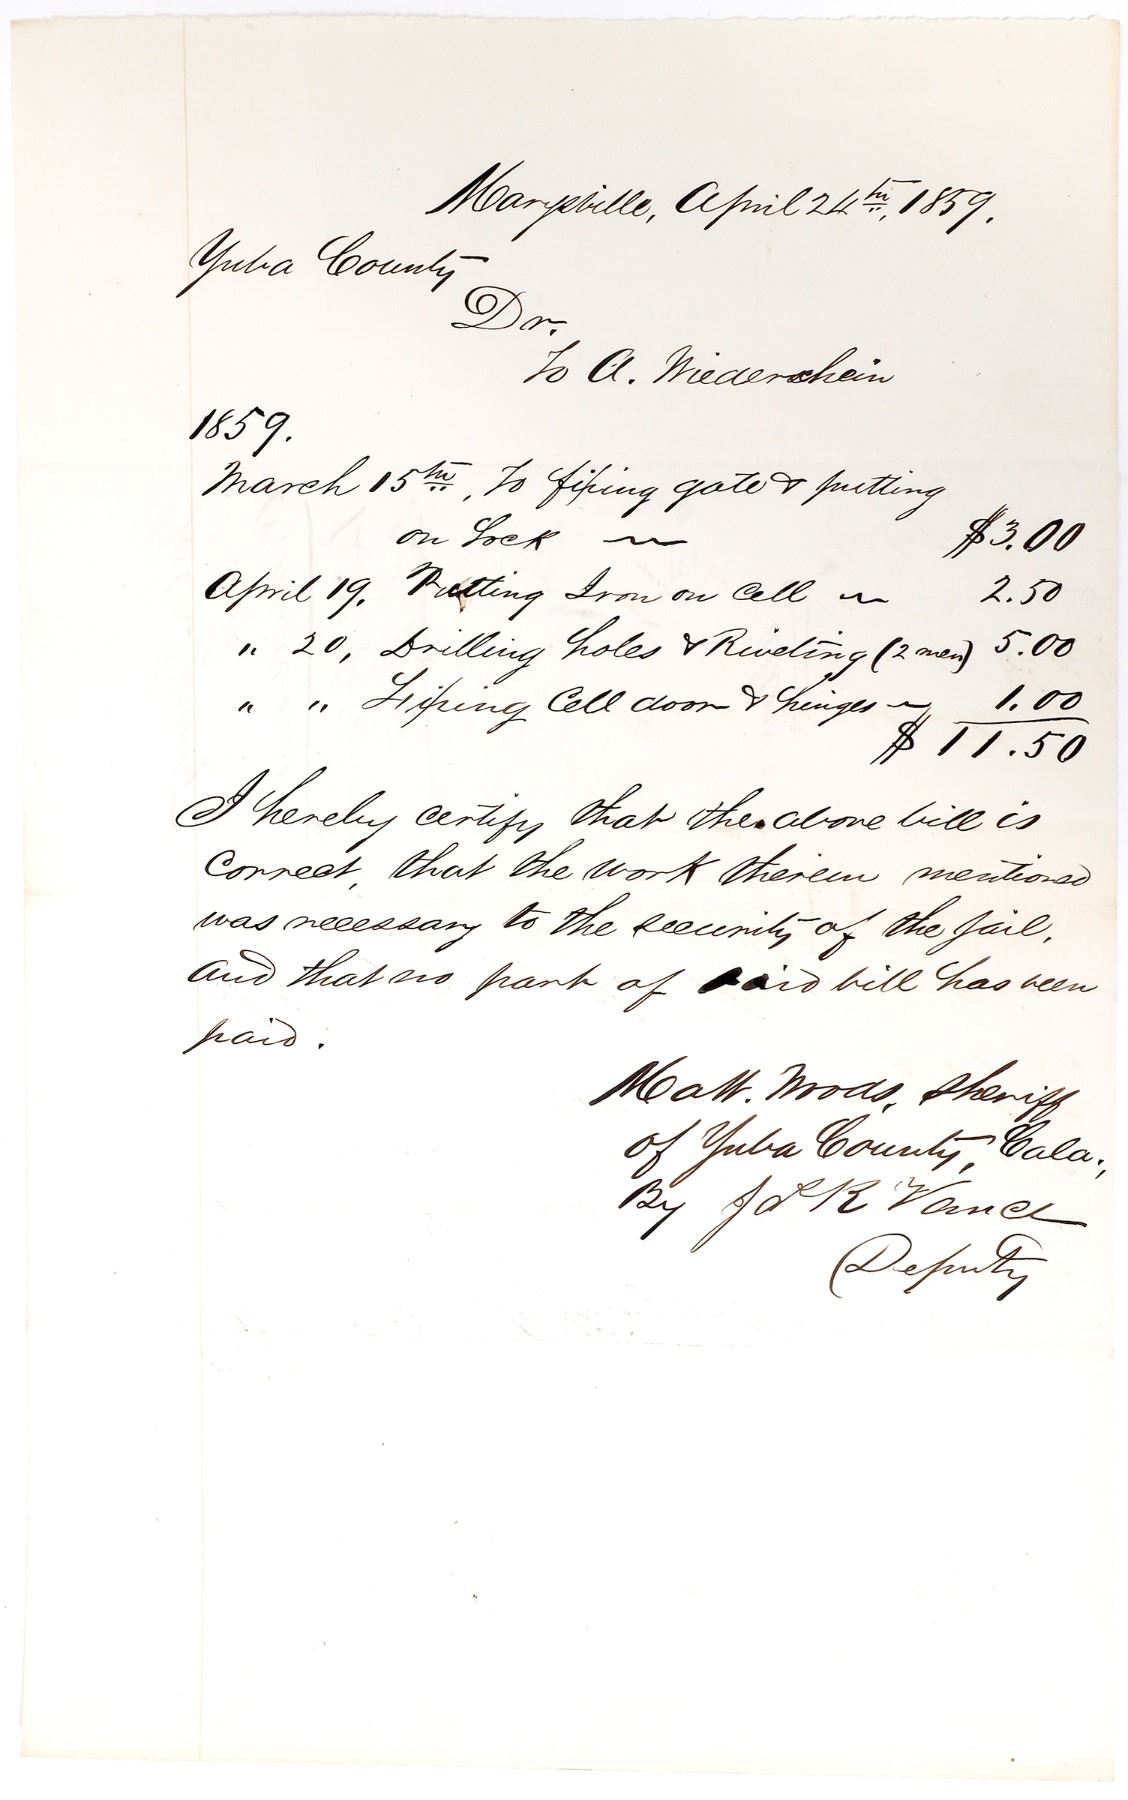 Marysville, April 24th, 1859.
Yuba County
Dr.
To A. Niederschein
1859.
March 15th, To fixing gate & putting
on Lock $3.00
April 19. Putting Iron on Cell 2.50
" 20, Drilling holes & Riveting (2 men) 5.00
" " Fixing Cell door & hinges 1.00
$11.50
I hereby certify that the above bill is
correct, that the work therein mentioned
was necessary to the security of the jail,
and that no part of said bill has been
paid.
Matt. Woods, Sheriff
of Yuba County, Cala.,
By Vance
Deputy